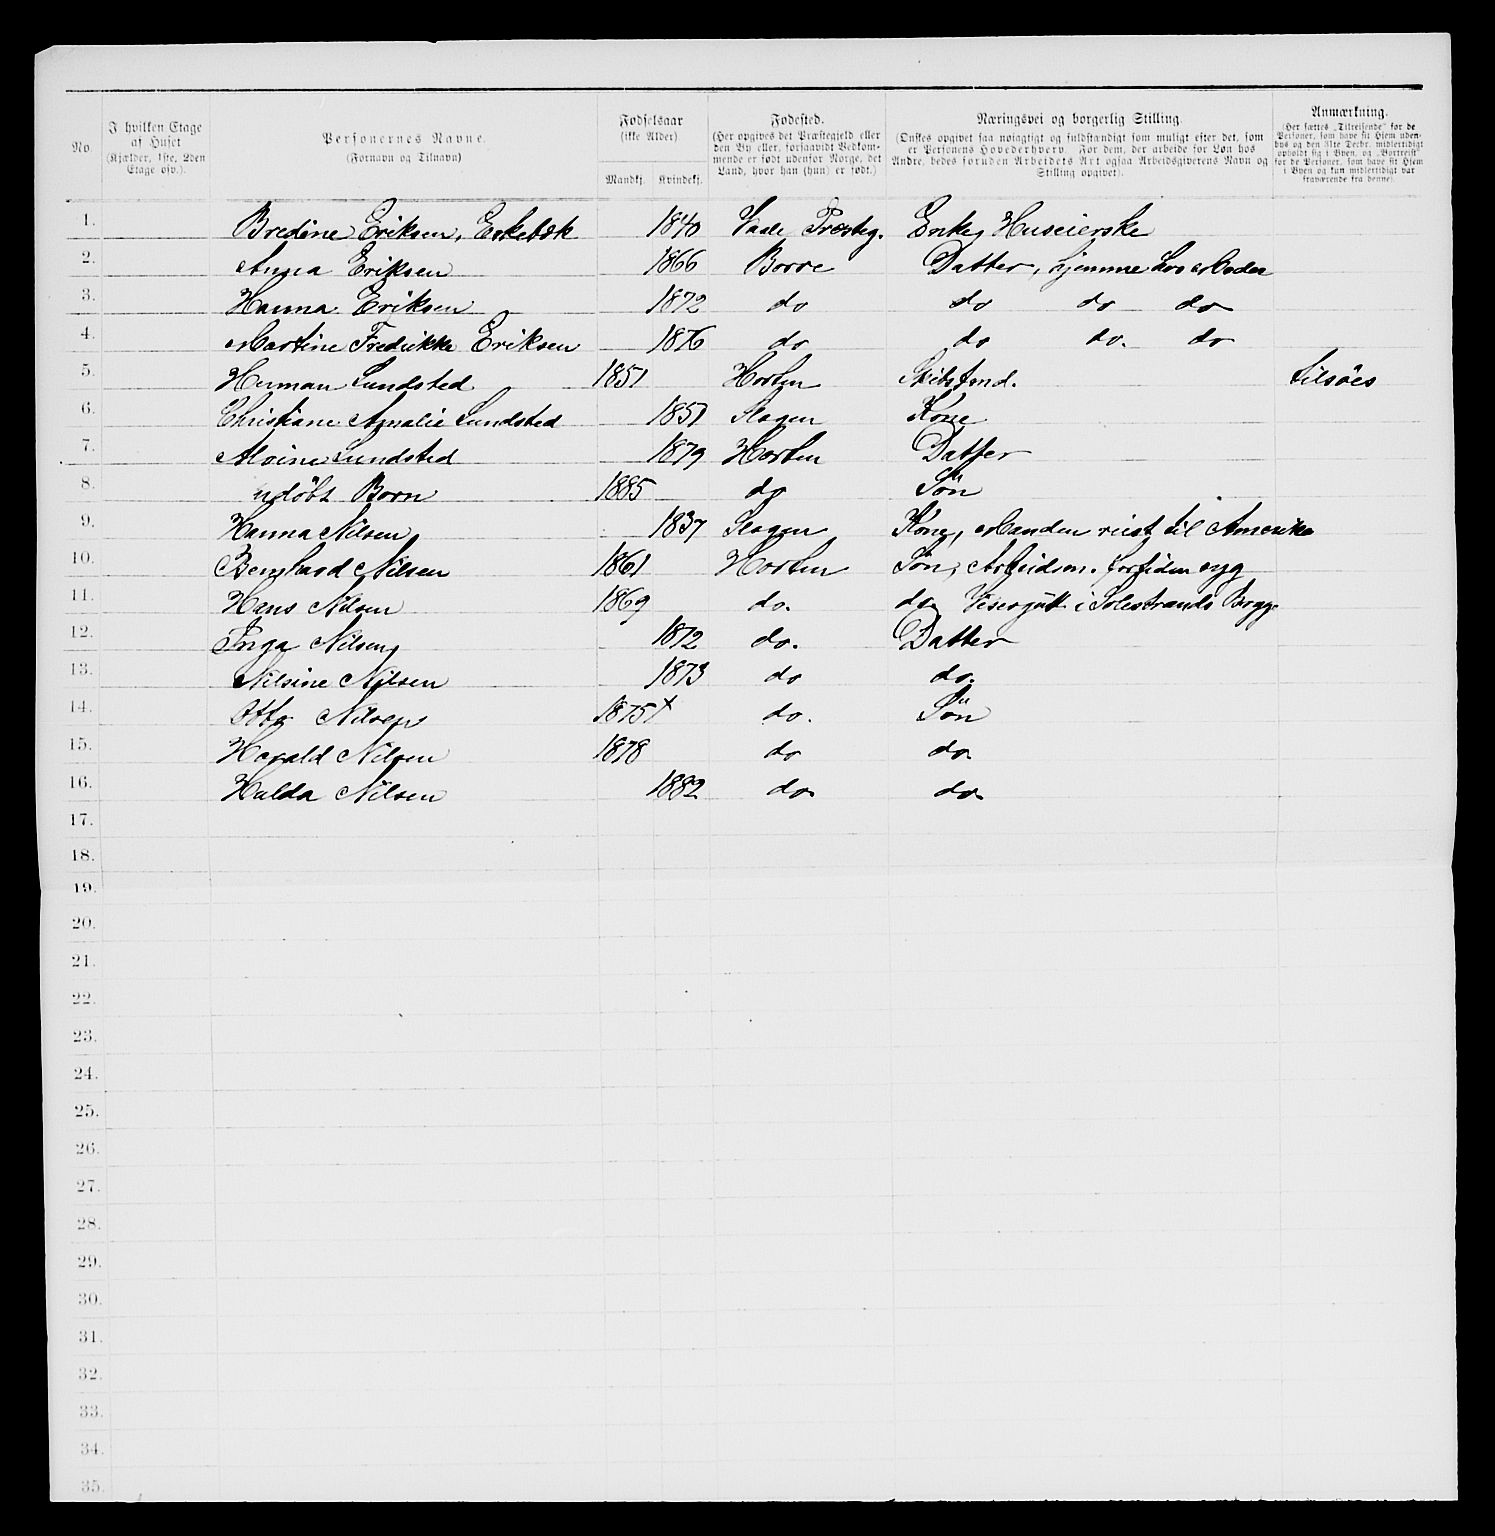 No.
I hvilken Etage af Huset (Kjælder, 1ste, 2den Etage osv.).
Personernes Navne. (Fornavn og Tilnavn)
Fødselsaar (ikke Alder) Mandkj. Kvindekj.
Fødested. (Her opgives det Præstegjeld eller den By eller, forsaavidt Vedkommende er født udenfor Norge, det Land, hvor han (hun) er født.)
Næringsvei og borgerlig Stilling. (Ønskes opgivet saa nøiagtigt og fuldstændigt som muligt efter det, som er Personens Hovederhverv. For dem, der arbeide for Løn hos Andre, bedes foruden Arbeidets Art ogsaa Arbeidsgiverens Navn og Stilling opgivet).
Anmærkning. (Her sættes „Tilreisende" for de Personer, som have sit Hjem udenbys og den 31te Decbr. midlertidigt opholdt sig i Byen, og „Bortreist" for de Personer, som have sit Hjem i Byen og kun midlertidigt var fraværende fra denne).
1. Bredine Eriksen, 1840 Vaale Præsteg. Enke, Huseierske
2. Anna Eriksen 1866 Borre Datter, hjemme hos Moder
3. Hanna Eriksen 1872 do do do do
4. Martine Fredrikke Eriksen 1876 do do do. do
5. Herman Lundsted 1851 Horten Skibstmd. tilsøes
6. Christiane Amalie Lundsted 1851 Slagen Kone
7. Alvine Lundsted 1879 Horten Datter
8. udöbt Barn 1885 do Sön
9. Hanna Nilsen 1837 Slagen Kone, Manden reist til Amerika
10. Bernhard Nilsen 1861 Horten Sön, Arbeidsm. fortiden syg
11. Hans Nilsen 1869 do. do Visergut i Solestrands Brygg.
12. Inga Nilsen 1872 do. Datter
13. Nilsine Nilsen 1873 do do.
14. Otto Nilsen 1875 do. Sön
15. Harald Nilsen 1878 do do.
16. Hulda Nilsen 1882 do do
17.
18.
19.
20.
21.
22.
23.
24.
25.
26.
27.
28.
29.
30.
31.
32.
33.
34.
35.